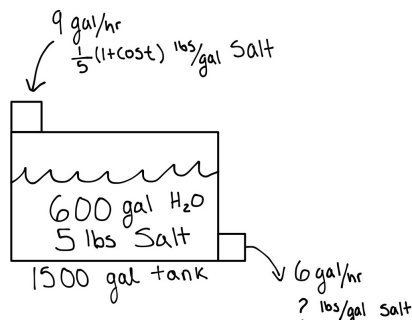 9 gal/hr
1/5 (1+cos t) lbs/gal Salt
600 gal H₂O
5 lbs Salt
1500 gal tank
6 gal/hr
? lbs/gal Salt